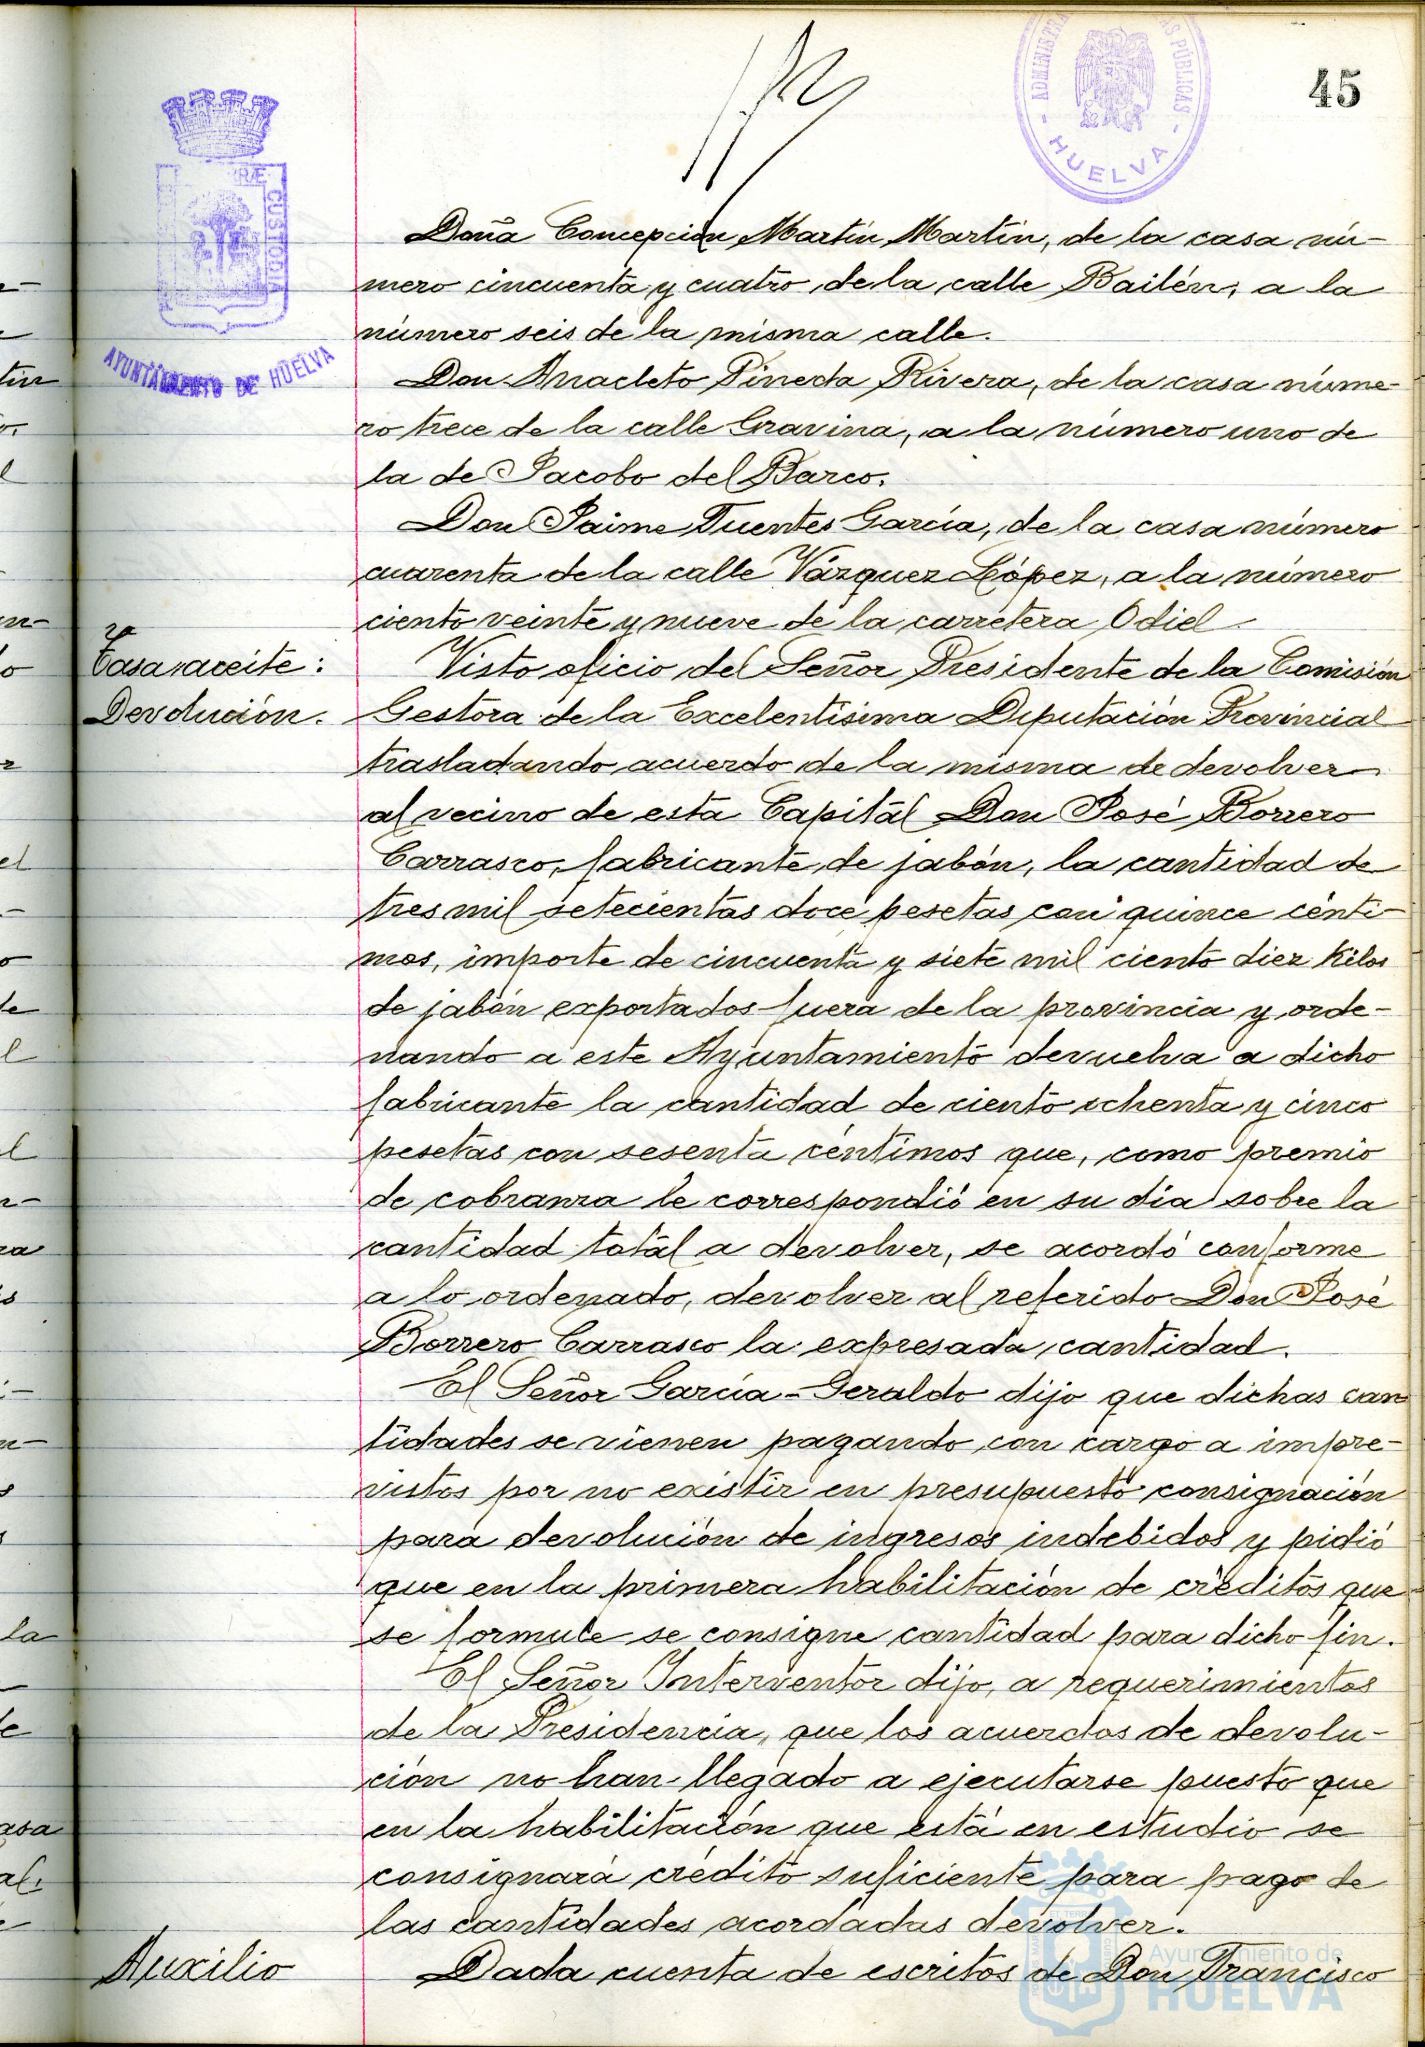 45
ADMINISTRA
AS PÚBLICAS
- HUELVA -
RÆ CUSTODIA
AYUNTAMIENTO DE HUELVA
Doña Concepción Martín Martín, de la casa nú-
mero cincuenta y cuatro de la calle Bailén, a la
número seis de la misma calle.
Don Anacleto Pineda Rivera, de la casa núme-
ro trece de la calle Gravina, a la número uno de
la de Jacobo del Barco.
Don Jaime Fuentes García, de la casa número
cuarenta de la calle Vázquez López, a la número
ciento veinte y nueve de la carretera Odiel.
Tasa aceite:
Devolución.
Visto oficio del Señor Presidente de la Comisión
Gestora de la Excelentísima Diputación Provincial
trasladando acuerdo de la misma de devolver
al vecino de esta Capital Don José Borrero
Carrasco, fabricante de jabón, la cantidad de
tres mil setecientas doce pesetas con quince cénti-
mos, importe de cincuenta y siete mil ciento diez kilos
de jabón exportados fuera de la provincia y orde-
nando a este Ayuntamiento devuelva a dicho
fabricante la cantidad de ciento ochenta y cinco
pesetas con sesenta céntimos que, como premio
de cobranza le correspondió en su día sobre la
cantidad total a devolver, se acordó conforme
a lo ordenado, devolver al referido Don José
Borrero Carrasco la expresada cantidad.
El Señor García-Geraldo dijo que dichas can
tidades se vienen pagando con cargo a impre-
vistos por no existir en presupuesto consignación
para devolución de ingresos indebidos y pidió
que en la primera habilitación de créditos que
se formule se consigne cantidad para dicho fin.
El Señor Interventor dijo, a requerimientos
de la Presidencia, que los acuerdos de devolu-
ción no han llegado a ejecutarse puesto que
en la habilitación que está en estudio se
consignará crédito suficiente para pago de
las cantidades acordadas devolver.
Auxilio
Dada cuenta de escritos de Don Francisco
Ayuntamiento de
HUELVA